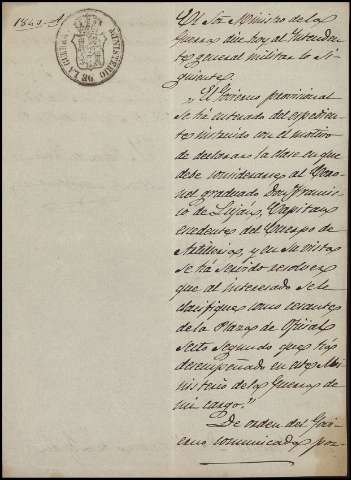 1840
MINISTERIO DE LA GUERRA
El Sor. Ministro de la
Guerra dice hoy al Intenden-
te general militar lo si-
guiente.
"El Gobierno provisional
se há enterado del espediente
instruido con el motivo
de declarar la clase en que
debe considerarse al Coro-
nel graduado Don Francis-
co de Luján, Capitan
excedente del Cuerpo de
Artilleria, y en su vista
se há servido resolver
que al interesado se le
clasifique como cesante
de la Plaza de Oficial
sesto segundo que há
desempeñado en este Mi-
nisterio de la Guerra de
mi cargo."
De orden del Go-
bierno comunicada por